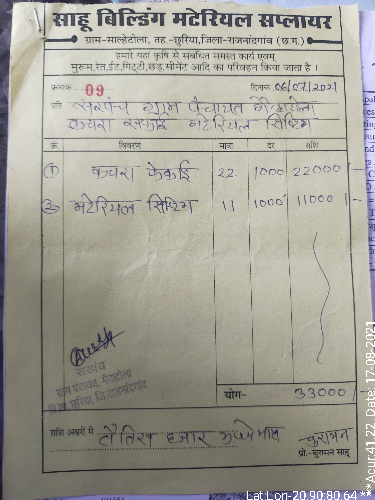 साहू बिल्डिंग मटेरियल सप्लायर
ग्राम-साल्हेटोला, तह-छुरिया, जिला-राजनांदगांव (छ.ग.)
हमारे यहां कृषि से संबंधित समस्त कार्य एवम्
मुरूम, रेत, ईंट, गिट्टी, छड़, सीमेंट आदि का परिवहन किया जाता है ।
क्रमांक 09. दिनांक 06/07/2021
प्रति सरपंच ग्राम पंचायत गैंदाटोला
कचरा सफाई मटेरियल सिफ्टिंग
क्र. विवरण मात्रा दर राशि
① कचरा फेकाई 22 1000 22000/-
② मटेरियल सिफ्टिंग 11 1000 11000/-
सरपंच
ग्राम पंचायत, गैंदाटोला
छुरिया, जि.राजनांदगांव
योग- 33000/-
राशि अक्षरों में तैंतिस हजार रूपये मात्र
प्रो.-चुरामन साहू
Lat:Lon-20.90:80.64
***Acur:41.22 Date: 17-08-2021